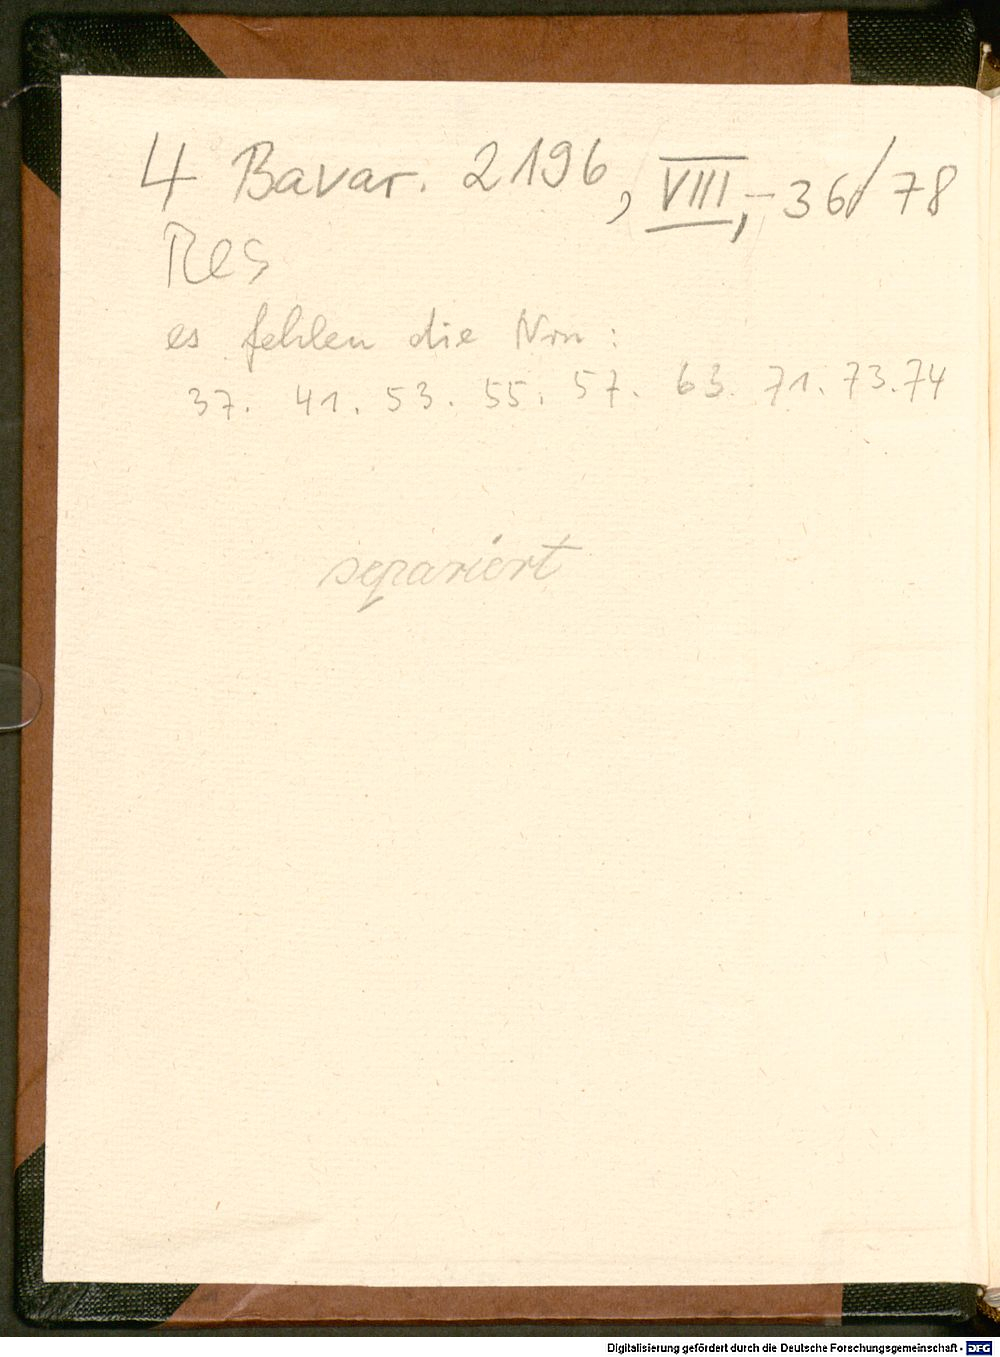 4 Bavar. 2196, VIII,-36/78
Res
es fehlen die Nrn:
37. 41. 53. 55. 57. 63. 71. 73. 74
separiert
Digitalisierung gefördert durch die Deutsche Forschungsgemeinschaft - DFG